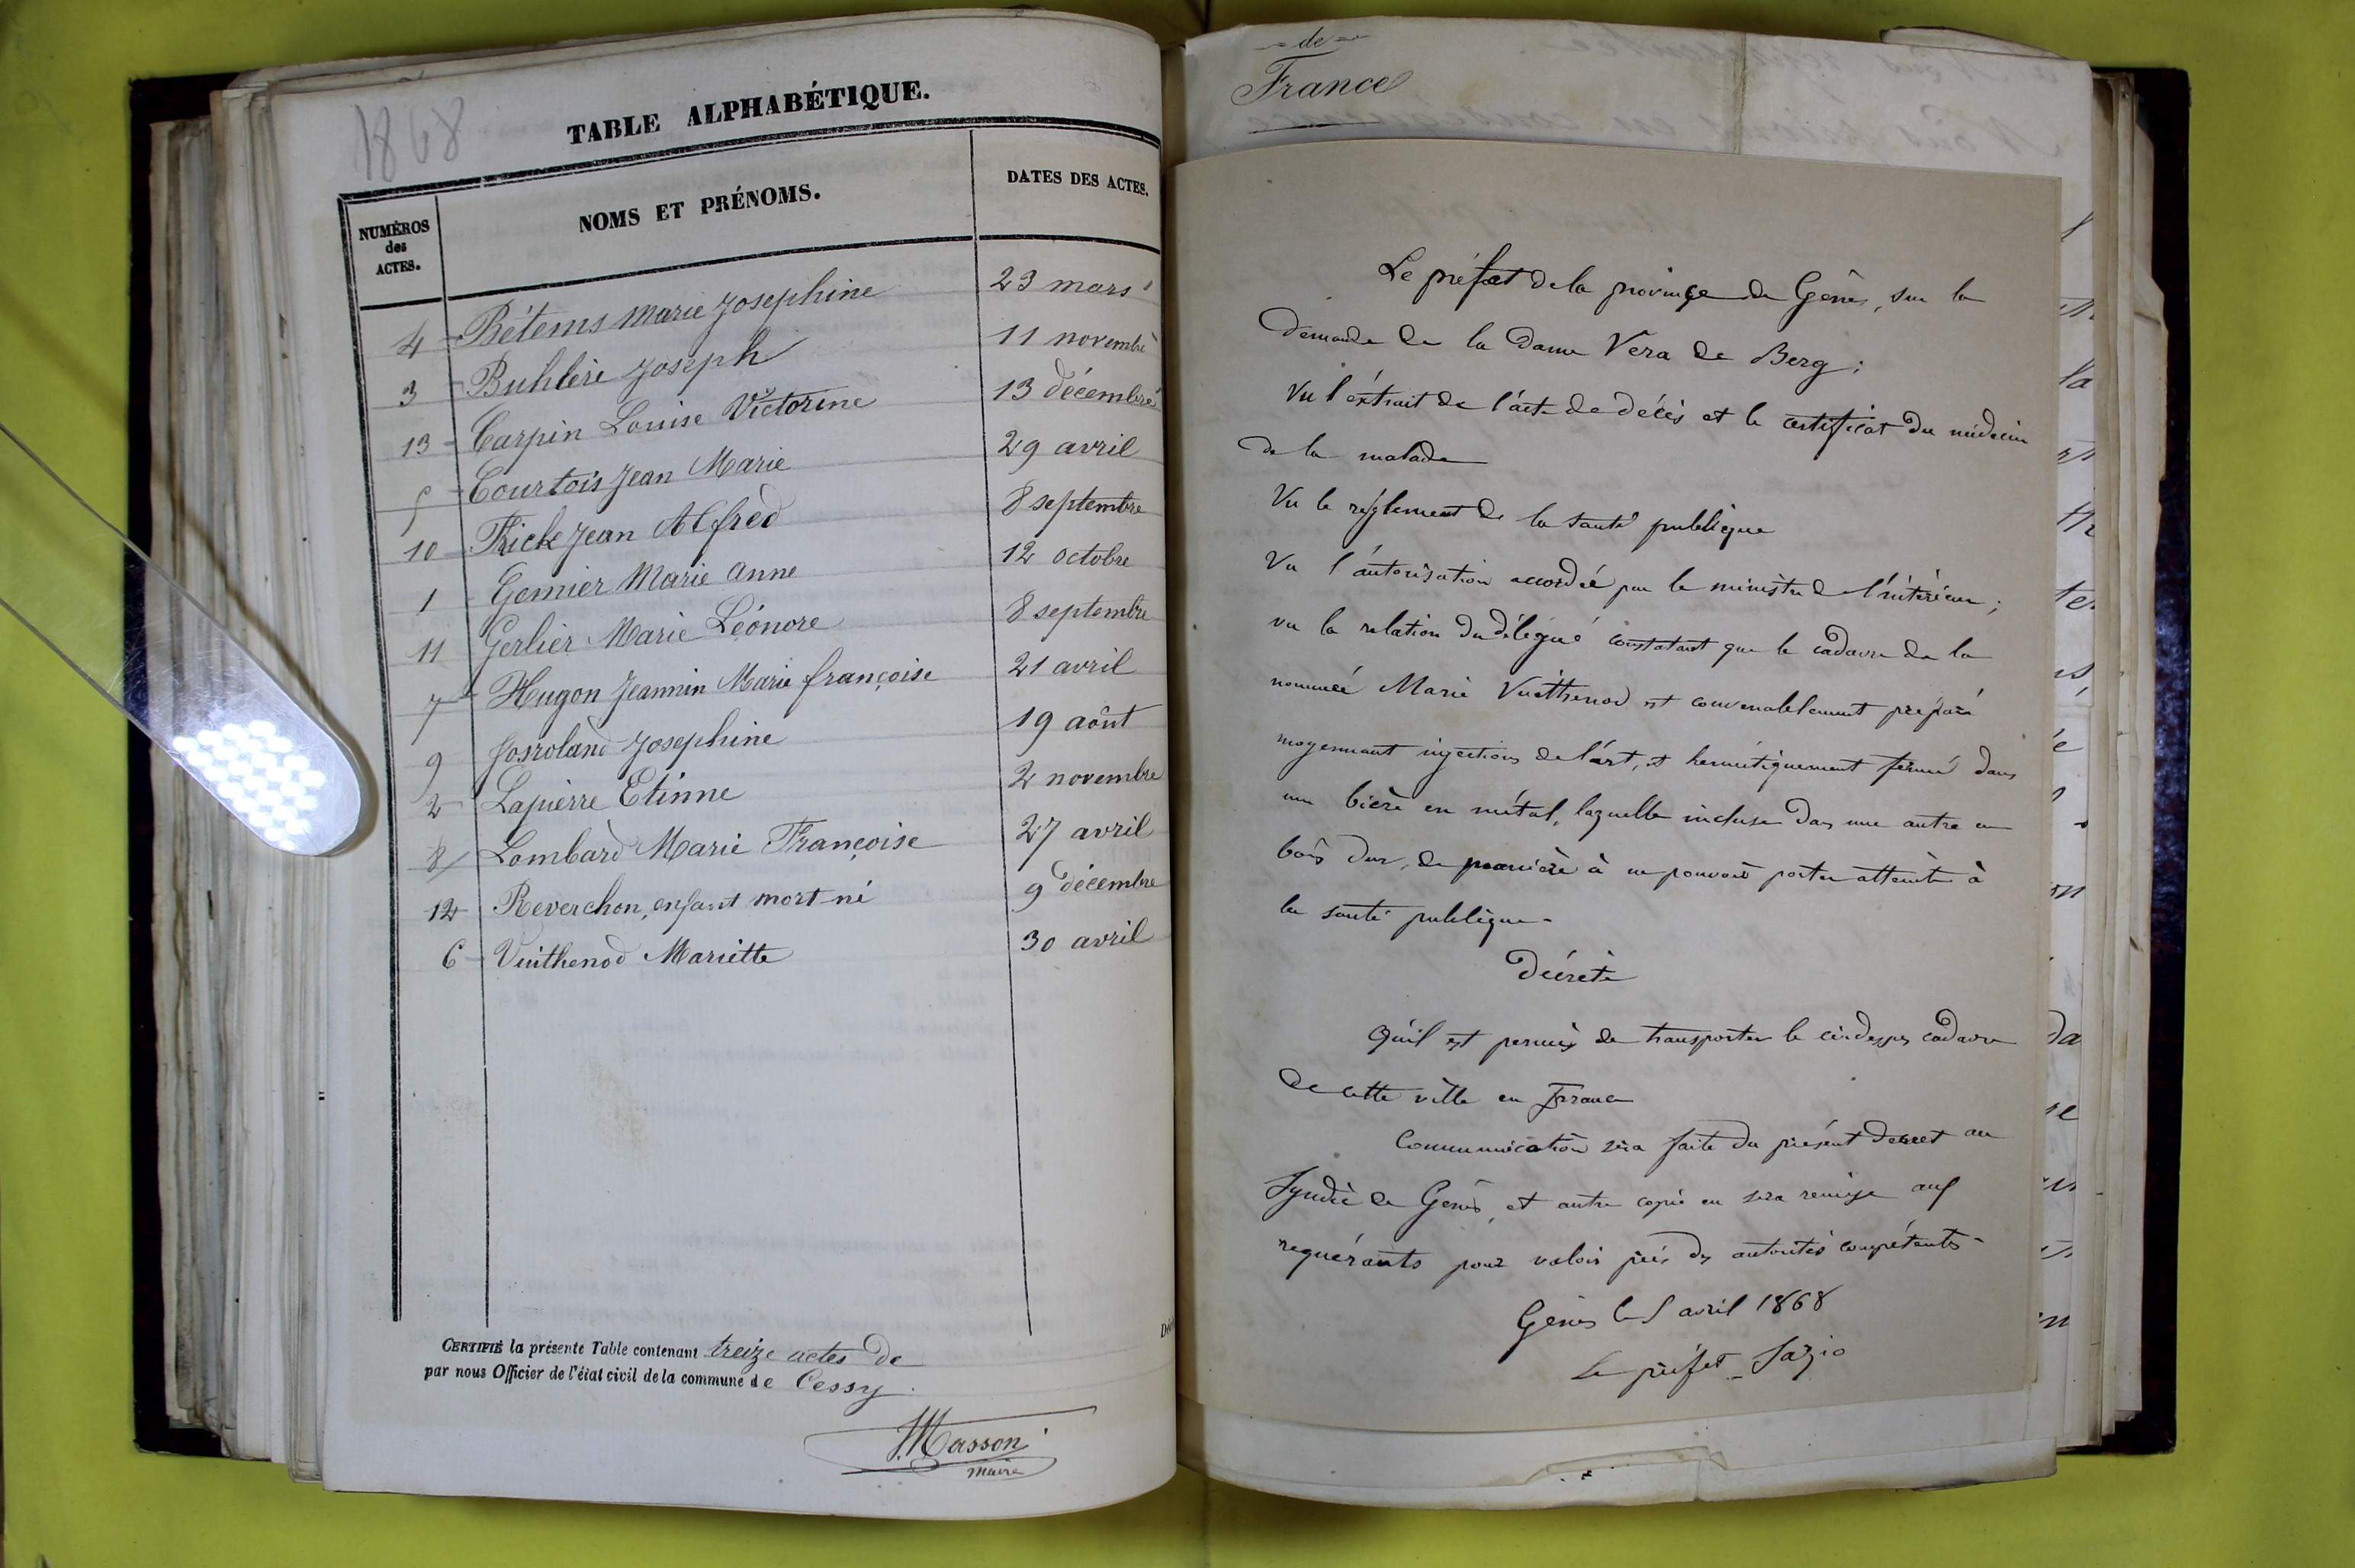 1868
TABLE ALPHABÉTIQUE.
NUMÉROS des ACTES.
NOMS ET PRÉNOMS.
DATES DES ACTES.
4 Bétems Marie Josephine 23 mars
3 Buhlère Joseph 11 novembre
13 Carpin Louise Victorine 13 décembre
5 Courtois Jean Marie 29 avril
10 Frick Jean Alfred 8 septembre
1 Gernier Marie Anne 12 octobre
11 Gerlier Marie Léonore 8 septembre
7 Hugon Jeannin Marie françoise 21 avril
9 Josroland Josephine 19 août
2 Lapierre Etinne 2 novembre
8 Lombard Marie Françoise 27 avril
12 Reverchon, enfant mort-né 9 décembre
6 Vuithenod Mariette 30 avril
CERTIFIÉ la présente Table contenant treize actes de
par nous Officier de l'état civil de la commune de Cessy.
Masson
maire
de
France
Le préfet de la province de Gênes, sur la
demande de la dame Vera de Berg ;
Vu l'extrait de l'acte de décès et le certificat du médecin
de la malade
Vu le règlement de la santé publique
Vu l'autorisation accordée par le ministre de l'intérieur ;
vu la relation du délégué constatant que le cadavre de la
nommée Marie Vuithenod est convenablement préparé
moyennant injections de l'art, et hermétiquement fermé dans
une bière en métal, laquelle incluse dans une autre en
bois dur, de manière à ne pouvoir porter atteinte à
la santé publique -
Décrète
Qu'il est permis de transporter le ci-dessus cadavre
de cette ville en France
Communication sera faite du présent decret au
Syndic de Gênes, et autre copie en sera remise aux
requérants pour valoir près des autorités compétentes -
Gênes le 5 avril 1868
Le préfet - Fazio